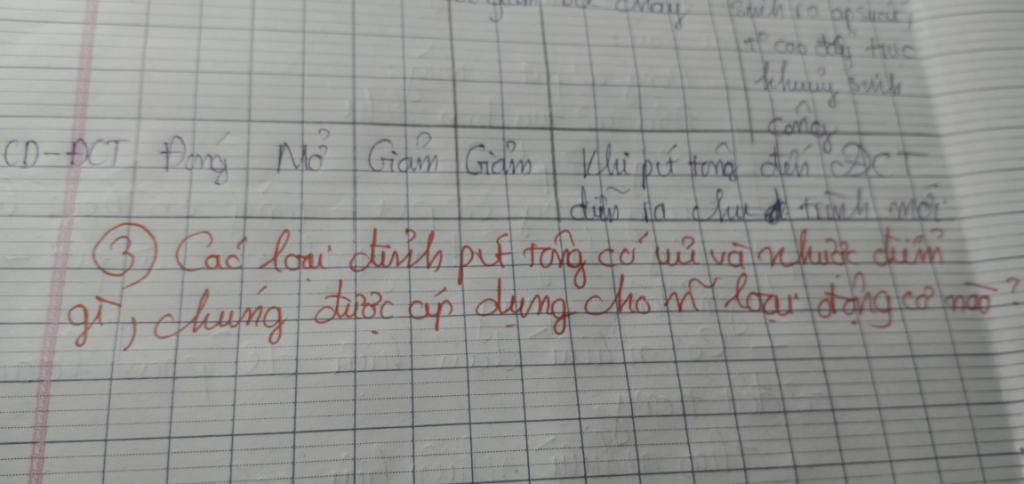 cao đẩy trục
khuỷu sinh
công
CD-ĐCT Đóng Mở Giảm Giảm Khi pít tông đến ĐCT
diễn ra chu trình mới
③ Các loại đỉnh pít tông có ưu và nhược điểm
gì, chúng được áp dụng cho n~ loại động cơ nào?